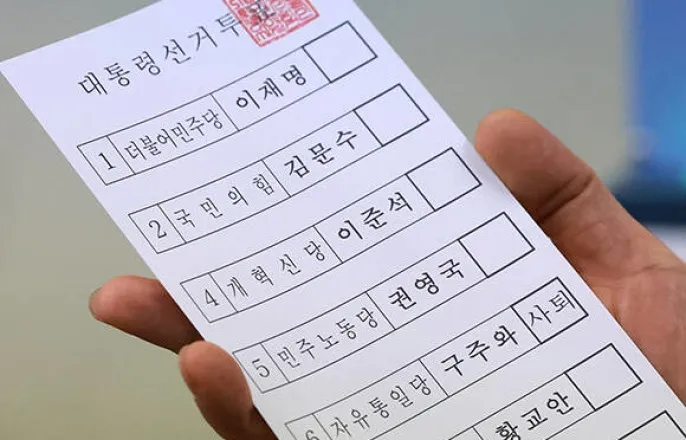 대통령선거투표
1 더불어민주당 이재명
2 국민의힘 김문수
4 개혁신당 이준석
5 민주노동당 권영국
6 자유통일당 구주와 사퇴
황교안